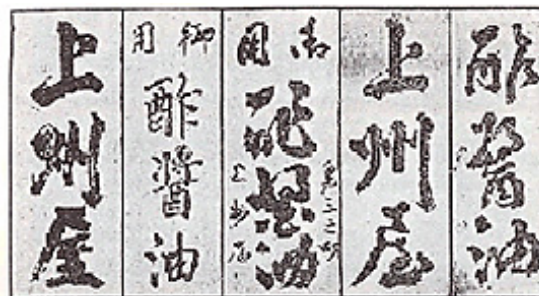 酢醤油
上州屋
御用
酢醤油
上州屋
御用
酢醤油
上州屋